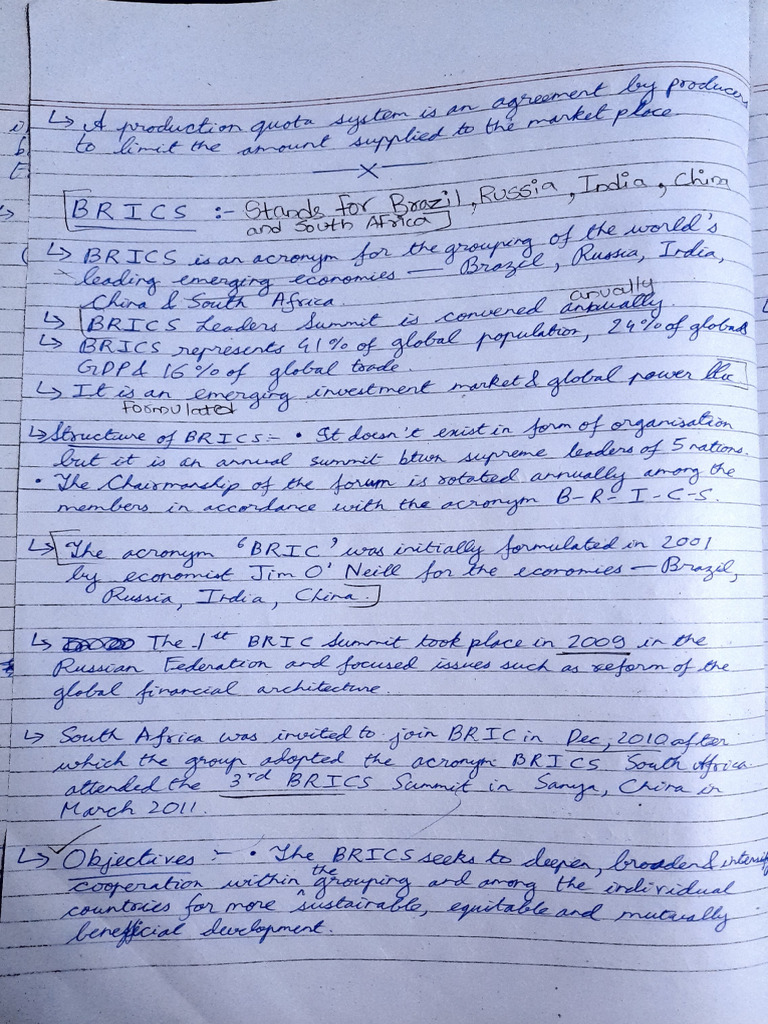 ↳ A production quota system is an agreement by producers
to limit the amount supplied to the market place
—x—
BRICS :- Stands for Brazil, Russia, India, China
and South Africa
↳ BRICS is an acronym for the grouping of the world's
leading emerging economies — Brazil, Russia, India,
China & South Africa.
anually
↳ BRICS Leaders Summit is convened annually.
↳ BRICS represents 41% of global population, 24% of global
GDP & 16% of global trade.
↳ It is an emerging investment market & global power bloc
formulated
↳ Structure of BRICS :- • It doesn't exist in form of organisation
but it is an annual summit btwn supreme leaders of 5 nations.
• The Chairmanship of the forum is rotated annually among the
members in accordance with the acronym B-R-I-C-S.
↳ The acronym 'BRIC' was initially formulated in 2001
by economist Jim O'Neill for the economies — Brazil,
Russia, India, China.
↳ The 1st BRIC Summit took place in 2009 in the
Russian Federation and focused issues such as reform of the
global financial architecture.
↳ South Africa was invited to join BRIC in Dec, 2010 after
which the group adopted the acronym BRICS South Africa
attended the 3rd BRICS Summit in Sanya, China in
March 2011.
↳ Objectives :- • The BRICS seeks to deepen, broaden & intensify
cooperation within the grouping and among the individual
countries for more sustainable, equitable and mutually
beneficial development.